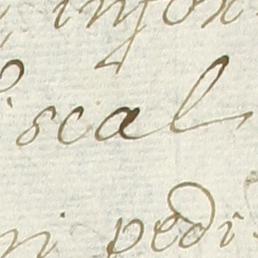 infor
iscal
ni pedi